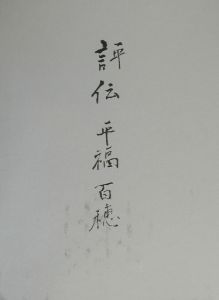 評伝 平福百穂